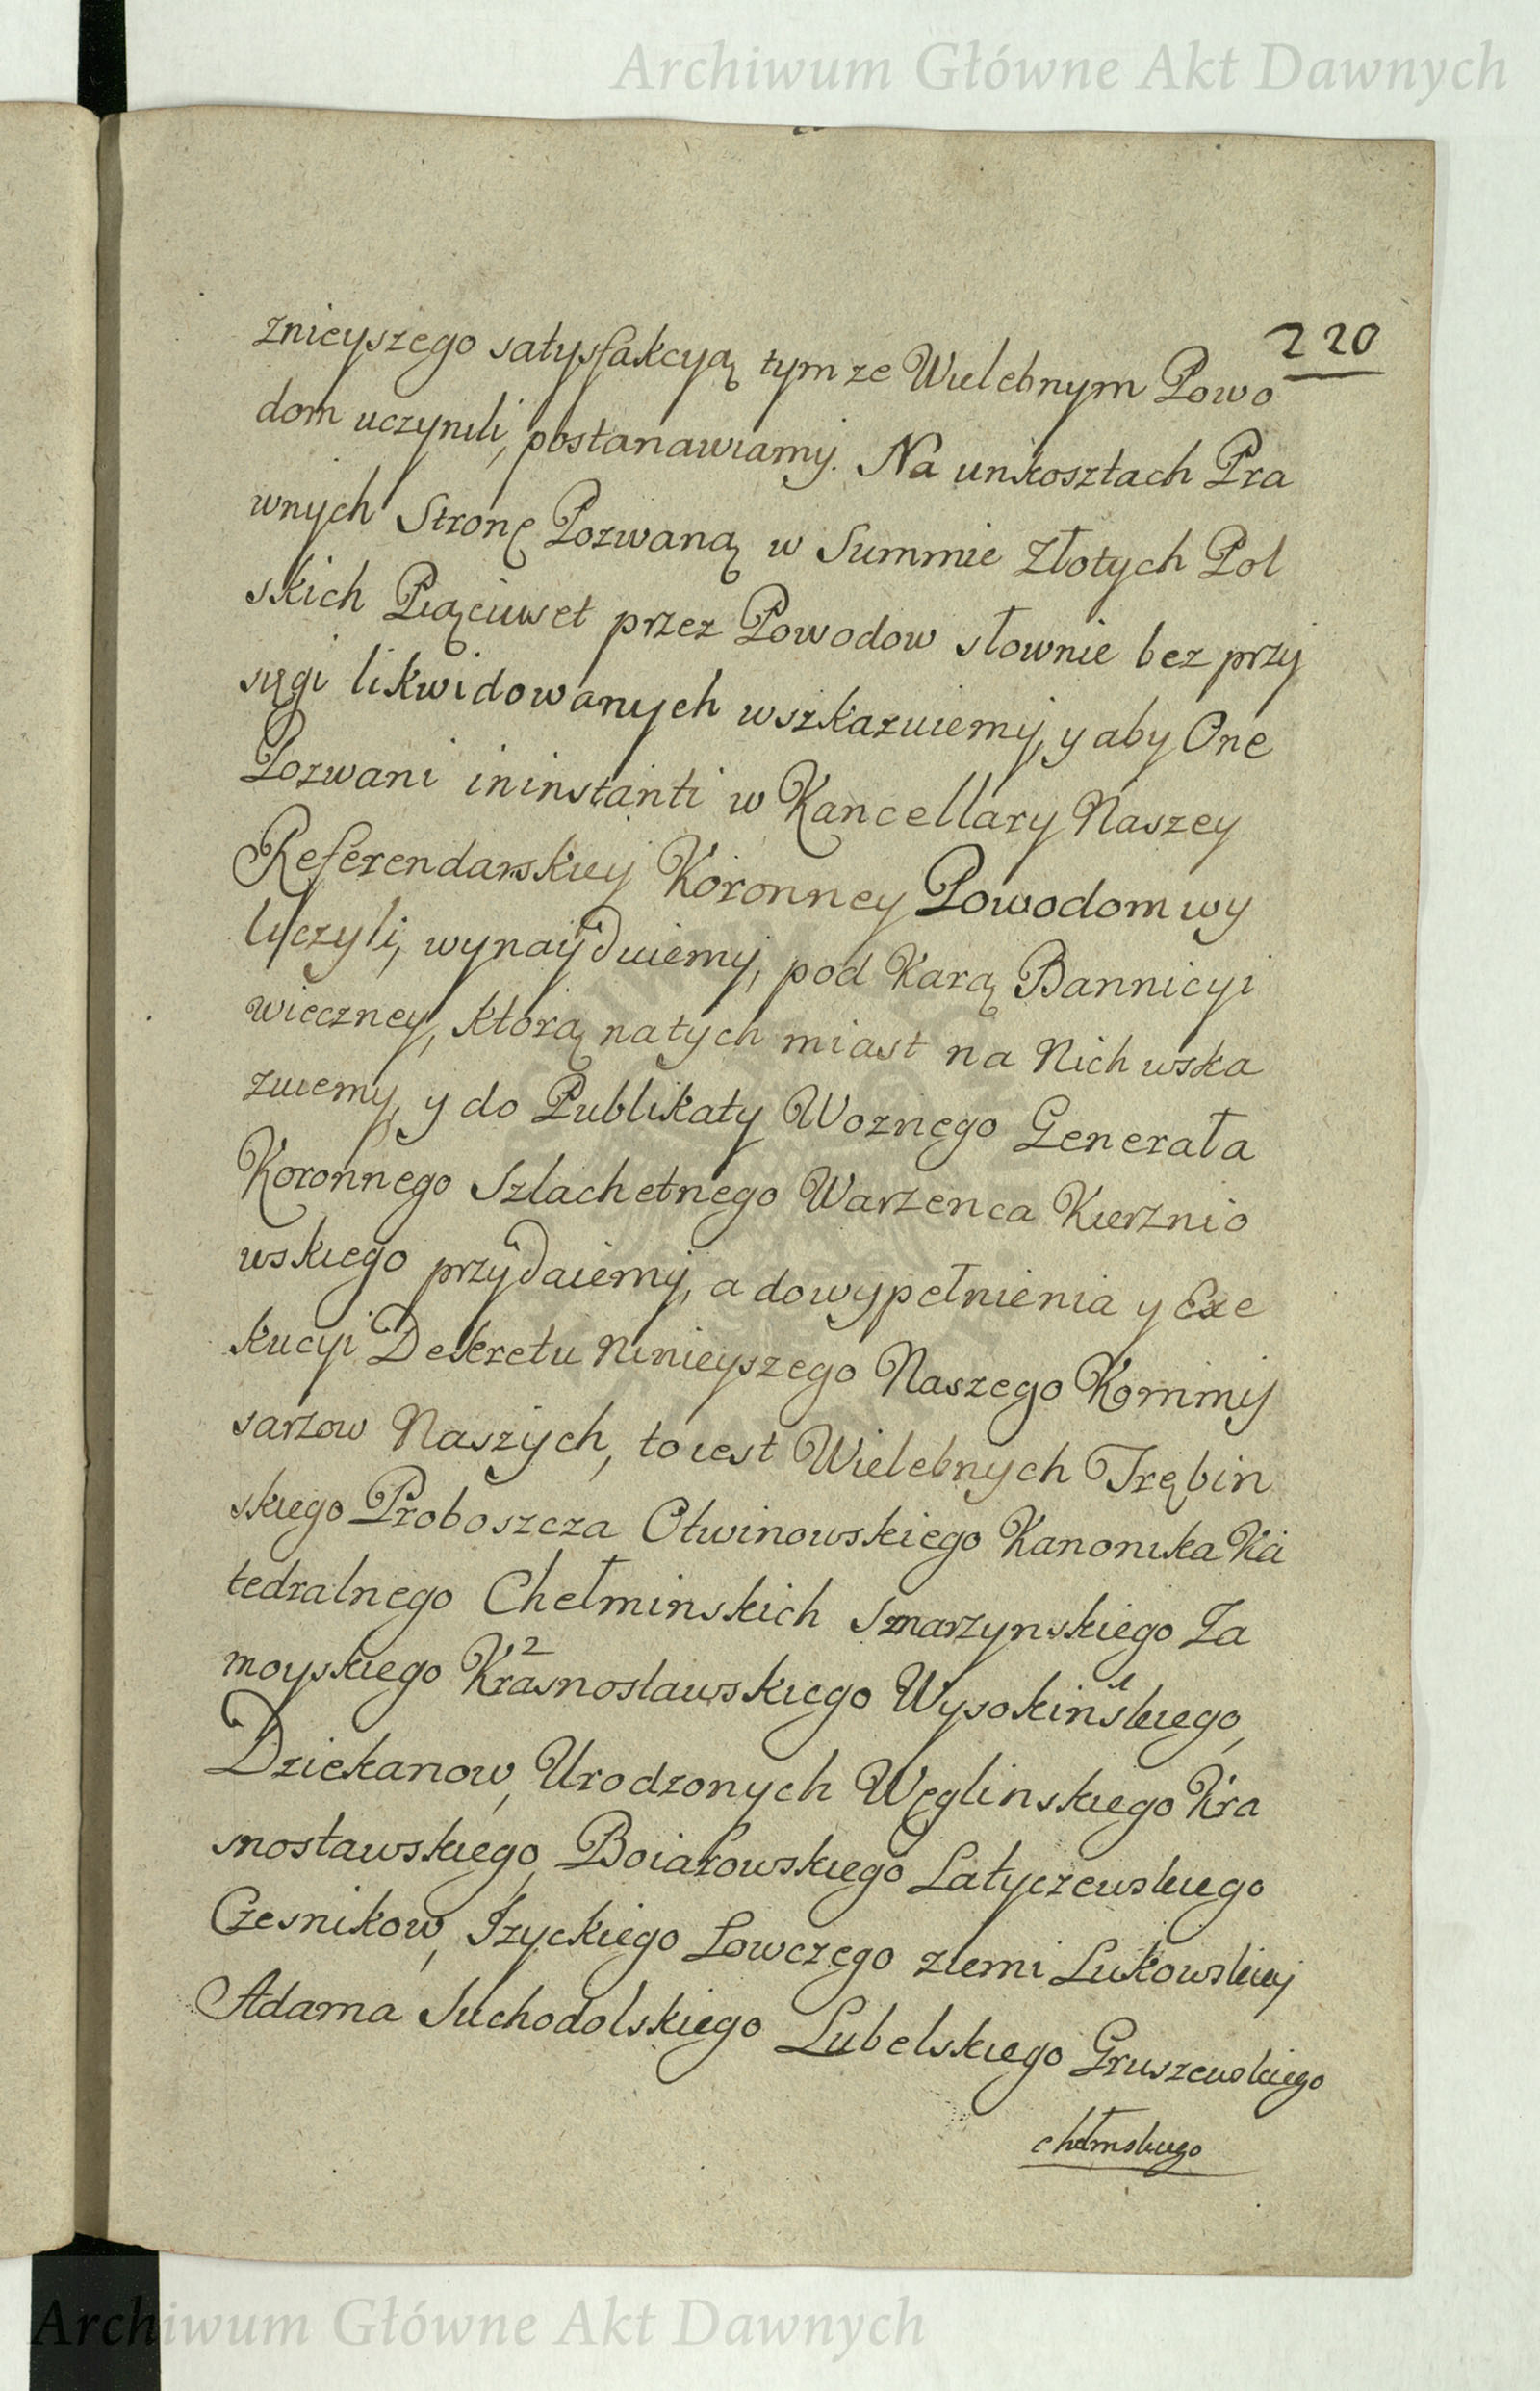 Archiwum Główne Akt Dawnych
220
znieyszego satysfakcyą tym ze Wielebnym Powo
dom uczynili, postanawiamy. Na unkosztach Pra
wnych Stronę Pozwaną w Summie Złotych Pol
skich Pięciuset przez Powodow słownie bez przy
sięgi likwidowanych wszkazuiemy, y aby One
Pozwani in instanti w Kancellary Naszey
Referendarskiey Koronney Powodom wy
liczyli, wynayduiemy, pod Karą Bannicyi
wieczney, którą natych miast na Nich wska
zuiemy, y do Publikaty Woznego Generała
Koronnego Szlachetnego Warzenca Kierznio
wskiego przydaiemy, a do wypełnienia y Exe
kucyi Dekretu Ninieyszego Naszego Kommis
sarzow Naszych, to iest Wielebnych Trębin
skiego Proboszcza Otwinowskiego Kanonika Ka
tedralnego Chełminskich Smarzynskiego Za
moyskiego Krasnosławskiego 2 Wysokińskiego 1,
Dziekanow, Urodzonych Węglinskiego Kra
snostawskiego, Boiarowskiego Latyczewskiego
Czesnikow, Izyckiego Lowczego ziemi Lukowskiey
Adama Suchodolskiego Lubelskiego Gruszewskiego
chełmskiego
Archiwum Główne Akt Dawnych